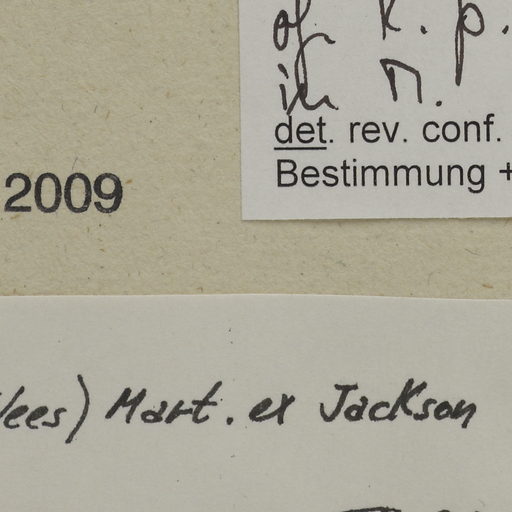 of K. p.
in M.
det. rev. conf.
Bestimmung +
2009
Nees) Mart. ex Jackson